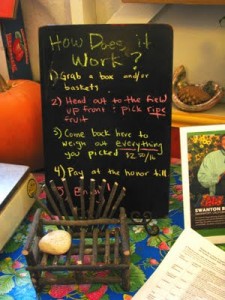 How Does it
Work?
1) Grab a box and/or
baskets
2) Head out to the field
up front: pick ripe
fruit
3) Come back here to
weigh out everything
you picked $2.10/lb
4) Pay at the honor till
5) Enjoy!
SWANTON B